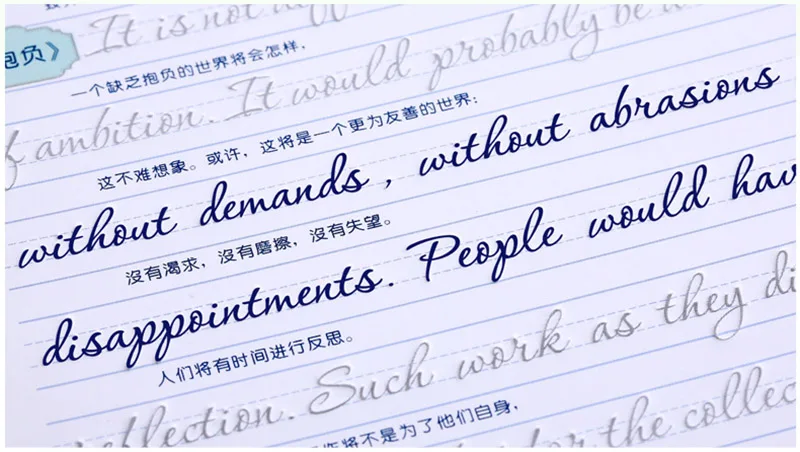 抱负》
It is not
一个缺乏抱负的世界将会怎样,
ambition. It would probably be
这不难想象。或许,这将是一个更为友善的世界:
without demands, without abrasions
沒有渴求,沒有磨擦,沒有失望。
disappointments. People would hav
人们将有时间进行反思。
flection. Such work as they di
将不是为了他们自身,
for the collec